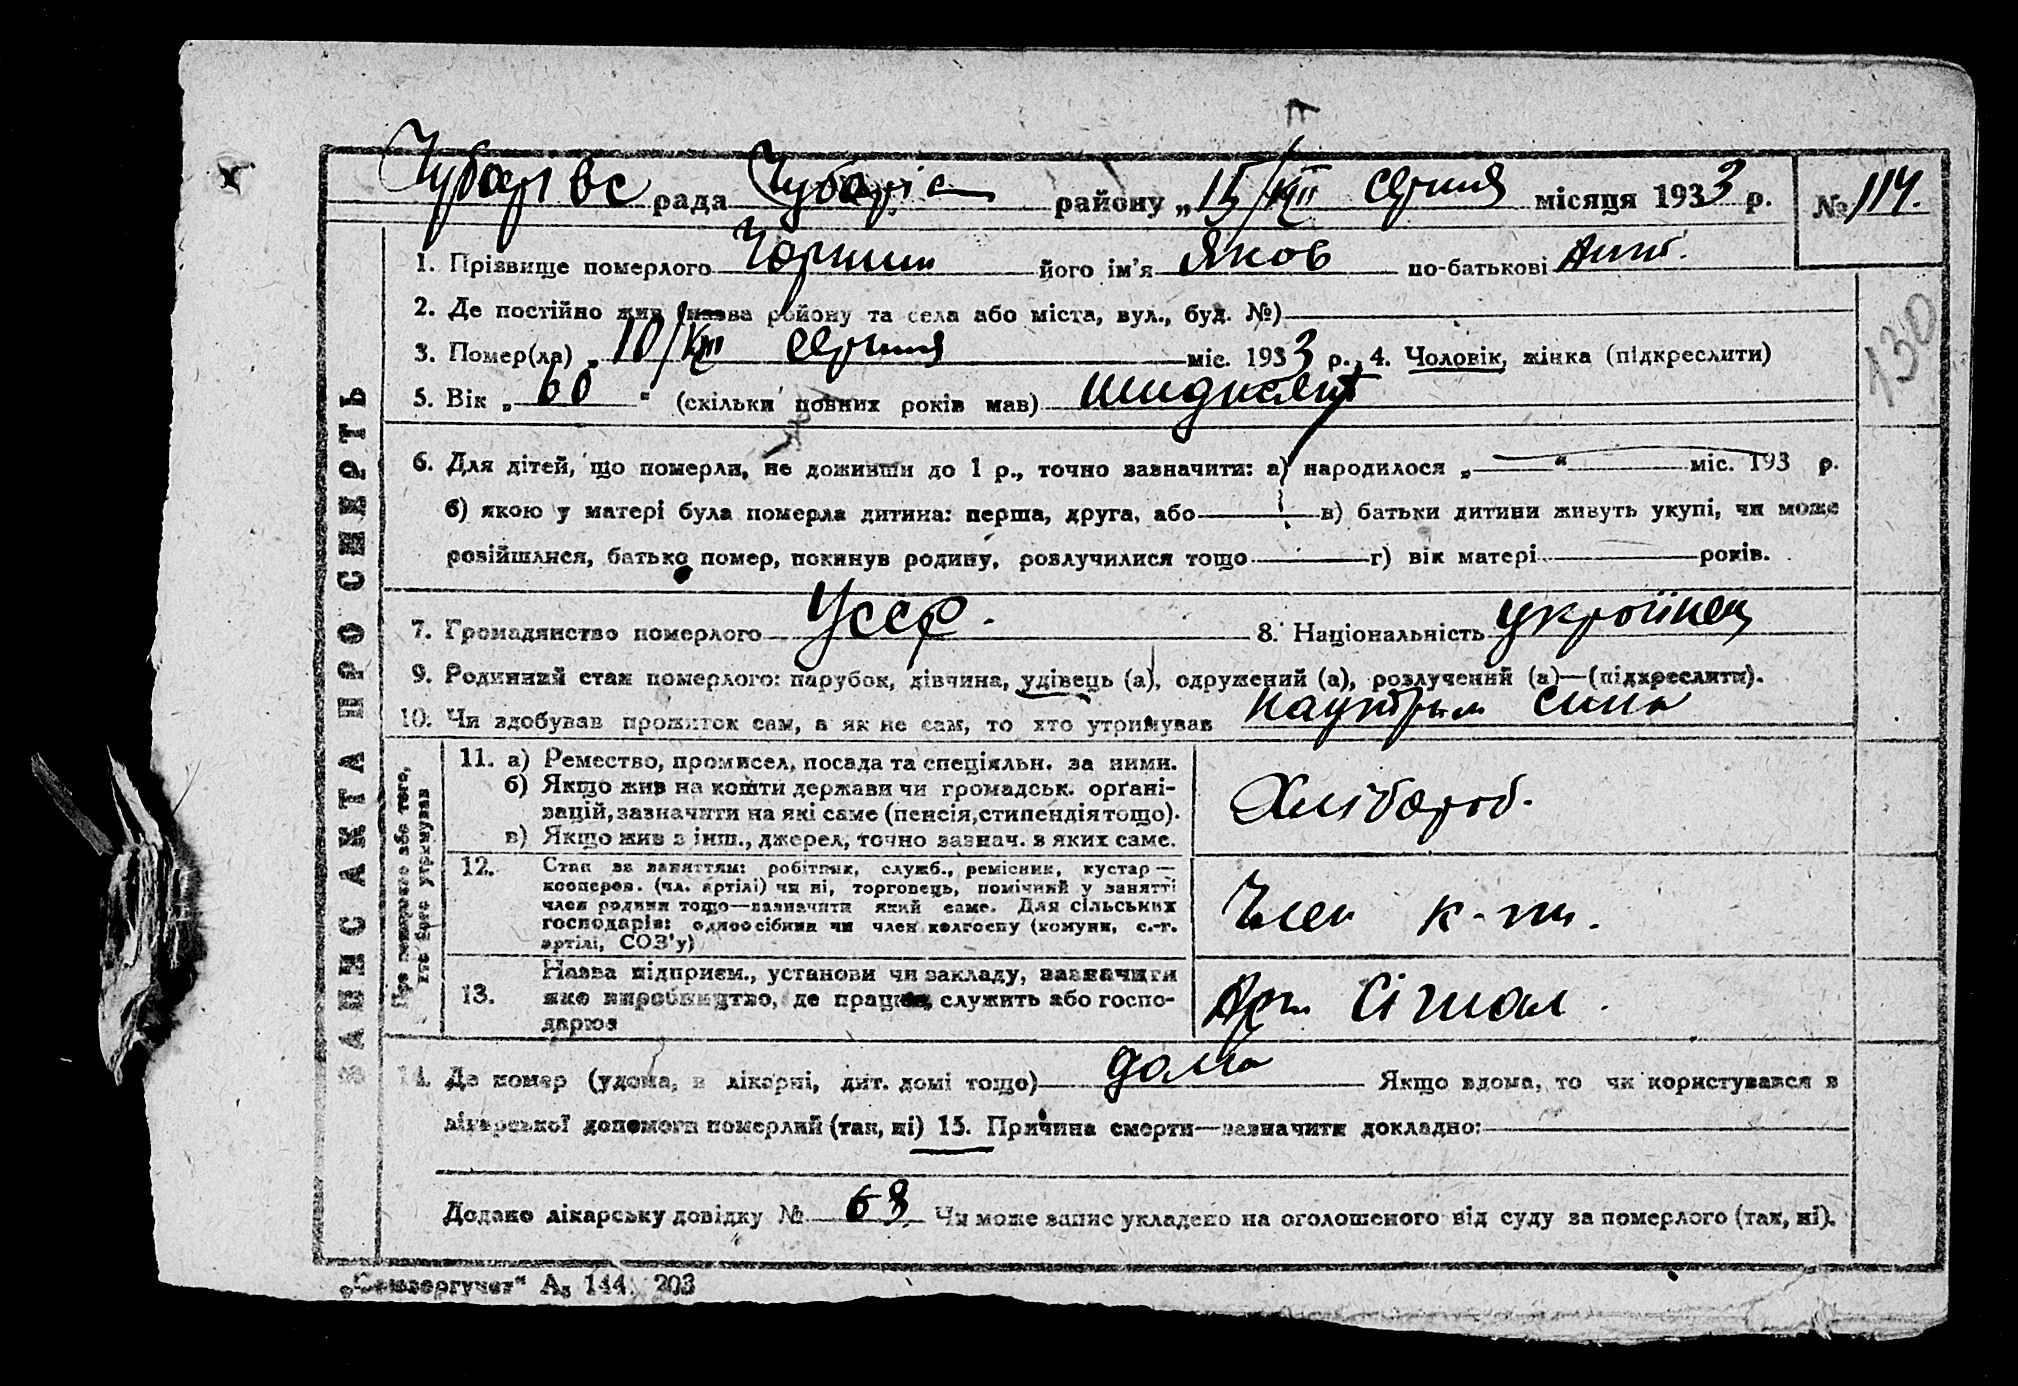 Чубарівс рада Чубарівс району „15/VIII серпня місяця 1933 р. № 114.
1. Прізвище померлого Чорний його ім'я Яков по-батькові Ант.
2. Де постійно жив (назва району та села або міста, вул., буд. №)
3. Помер(ла) „10/VIII серпня міс. 1933 р., 4. Чоловік, жінка (підкреслити)
5. Вік „60“ (скільки повних років мав) шидисят
130
6. Для дітей, що померли, не доживши до 1 р., точно зазначити: а) народилося „ “ міс. 193 р.
б) якою у матері була померла дитина: перша, друга, або в) батьки дитини живуть укупі, чи може
розійшлися, батько помер, покинув родину, розлучилися тощо г) вік матері років.
7. Громадянство померлого УССР. 8. Національність українец
9. Родинний стан померлого: парубок, дівчина, удівець (а), одружений (а), розлучений (а)—(підкреслити).
10. Чи здобував прожиток сам, а як не сам, то хто утримував сина
ЗАПИС АКТА ПРО СМЕРТЬ
Про померлого або того, хто його утримував
11. а) Ремество, промисел, посада та спеціяльн. за ними.
б) Якщо жив на кошти держави чи громадськ. орґані-
зацій, зазначити на які саме (пенсія, стипендія тощо).
в) Якщо жив з інш., джерел, точно зазнач. з яких саме.
Хлібороб.
12. Стан за заняттям: робітник, служб., ремісник, кустар—
кооперов. (чл. артілі) чи ні, торговець, помічний у занятті
член родини тощо—зазначити який саме. Для сільських
господарів: одноосібник чи член колгоспу (комуни, с.-г.
артілі, СОЗ'у)
Член к-ти.
13. Назва підприєм., установи чи закладу, зазначити
яке виробництво, де працює, служить або госпо-
дарює
Арт. Сігнал.
14. Де помер (удома, в лікарні, дит. домі тощо) дома Якщо вдома, то чи користувався з
лікарської допомоги померлий (так, ні) 15. Причина смерти—зазначити докладно:
Додано лікарську довідку № 68 Чи може запис укладено на оголошеного від суду за померлого (так, ні).
А, 144. 203